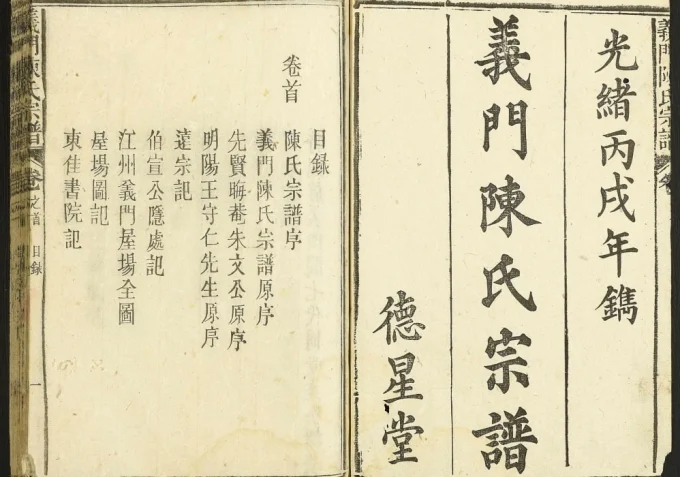 義門陳氏宗譜 卷
光緒丙戌年鐫
義門陳氏宗譜
德星堂
卷首
目録
陳氏宗譜序
義門陳氏宗譜原序
先賢晦菴朱文公原序
明陽王守仁先生原序
遠宗記
伯宣公隱處記
江州義門屋場全圖
屋場圖記
東佳書院記
義門陳氏宗譜 卷之首 目録 一